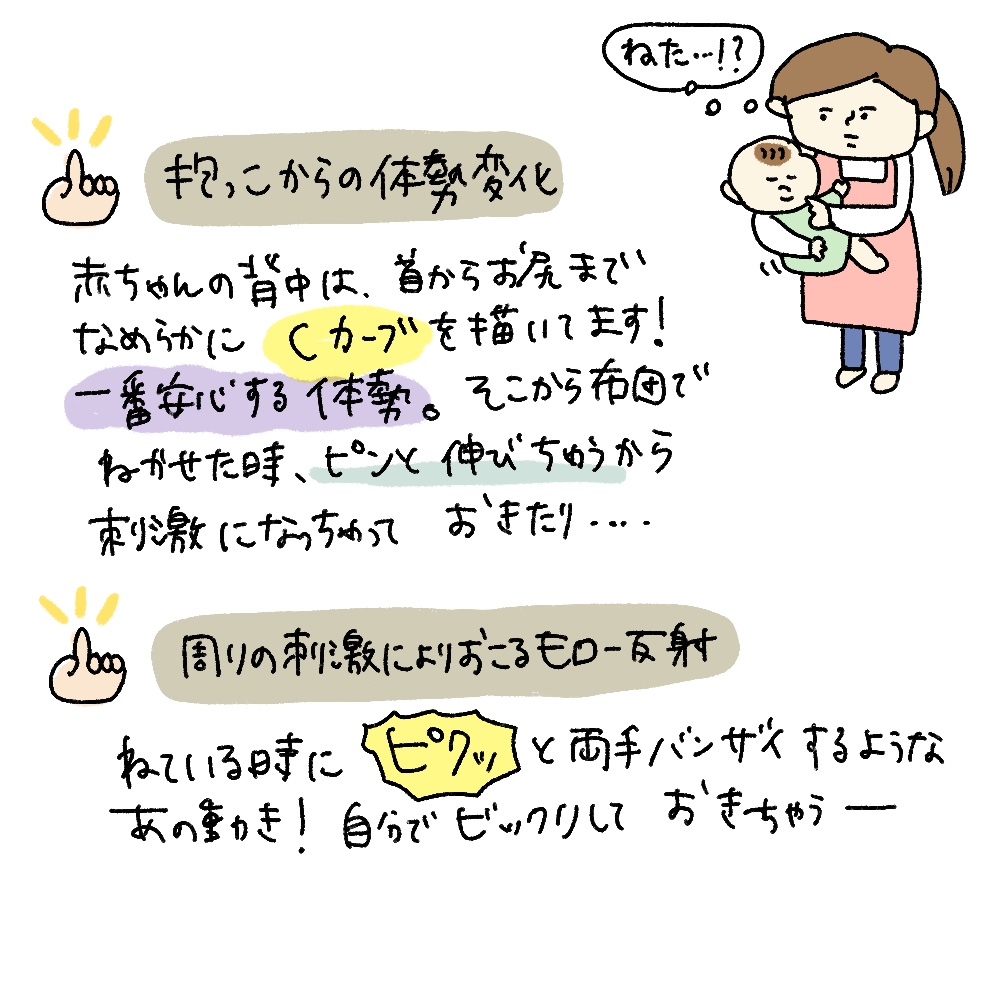 ねた…!?
抱っこからの体勢変化
赤ちゃんの背中は、首からお尻まで
なめらかに Cカーブを描いてます!
一番安心する体勢。そこから布団で
ねかせた時、ピンと伸びちゅうから
刺激になっちゃって おきたり‥‥
周りの刺激によりおこるモロー反射
ねている時に ピクッ と両手バンザイするような
あの動き! 自分でビックリして おきちゃうー